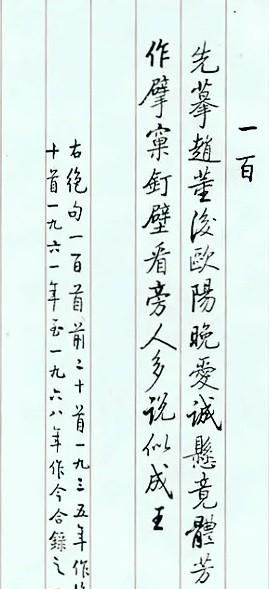 一百
先摹趙董後歐陽晚愛誠懸竟體芳
作擘窠釘壁看旁人多説似成王
右絶句一百首前二十首一九三五年作
十首一九六一年至一九六八年作今合録之